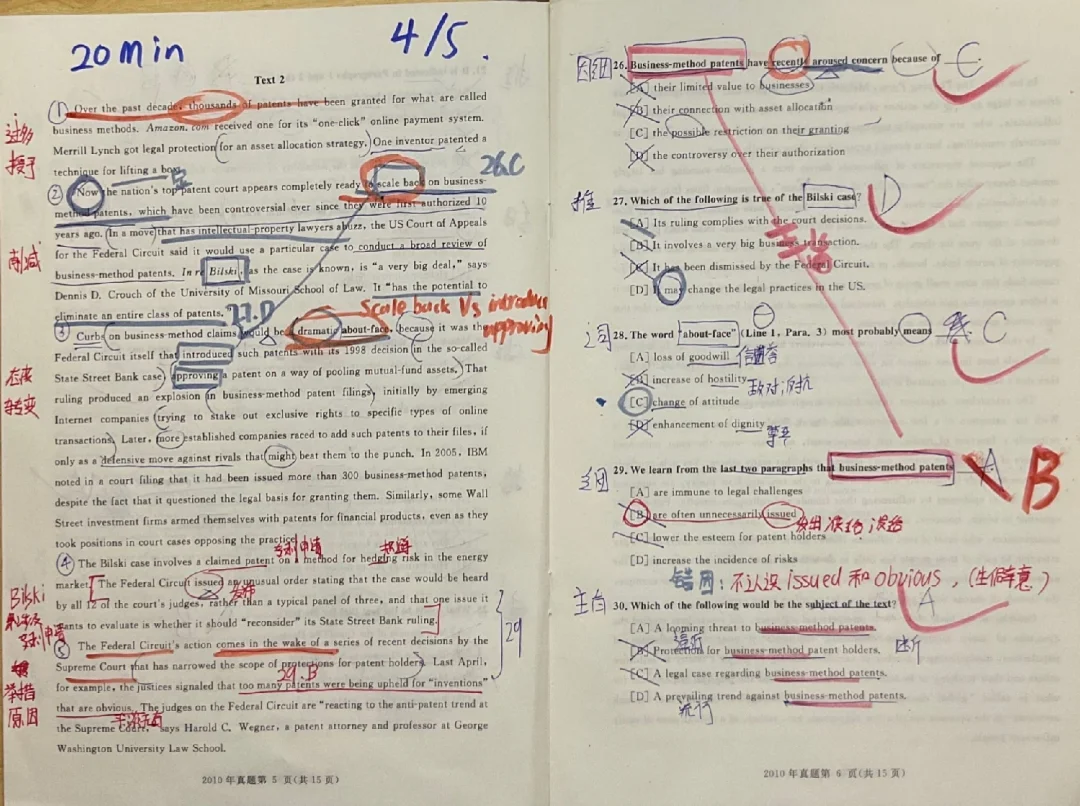 20 min
4/5.
Text 2
① Over the past decade, thousands of patents have been granted for what are called
business methods. Amazon.com received one for its "one-click" online payment system.
过多
Merrill Lynch got legal protection for an asset allocation strategy. One inventor patented a
授予
technique for lifting a box.
26.C
② Now the nation's top patent court appears completely ready to scale back on business-
method patents, which have been controversial ever since they were first authorized 10
years ago. In a move that has intellectual-property lawyers abuzz, the US Court of Appeals
for the Federal Circuit said it would use a particular case to conduct a broad review of
削减
business-method patents. In re Bilski, as the case is known, is "a very big deal," says
Dennis D. Crouch of the University of Missouri School of Law. It "has the potential to
eliminate an entire class of patents."
27.D
Scale back Vs introduce
approving
③ Curbs on business-method claims would be a dramatic about-face, because it was the
Federal Circuit itself that introduced such patents with its 1998 decision in the so-called
State Street Bank case, approving a patent on a way of pooling mutual-fund assets. That
转变
ruling produced an explosion in business-method patent filings, initially by emerging
Internet companies trying to stake out exclusive rights to specific types of online
transactions. Later, more established companies raced to add such patents to their files, if
only as a defensive move against rivals that might beat them to the punch. In 2005, IBM
noted in a court filing that it had been issued more than 300 business-method patents,
despite the fact that it questioned the legal basis for granting them. Similarly, some Wall
Street investment firms armed themselves with patents for financial products, even as they
took positions in court cases opposing the practice.
专利申请
④ The Bilski case involves a claimed patent on a method for hedging risk in the energy
market. The Federal Circuit issued an unusual order stating that the case would be heard
发布
Bilski
by all 12 of the court's judges, rather than a typical panel of three, and that one issue it
wants to evaluate is whether it should "reconsider" its State Street Bank ruling.
29
⑤ The Federal Circuit's action comes in the wake of a series of recent decisions by the
Supreme Court that has narrowed the scope of protections for patent holders. Last April,
29.B
举措
for example, the justices signaled that too many patents were being upheld for "inventions"
原因
that are obvious. The judges on the Federal Circuit are "reacting to the anti-patent trend at
the Supreme Court," says Harold C. Wegner, a patent attorney and professor at George
Washington University Law School.
2010 年真题第 5 页(共15页)
26. Business-method patents have recently aroused concern because of
C
[A] their limited value to businesses
[B] their connection with asset allocation
[C] the possible restriction on their granting
[D] the controversy over their authorization
推
27. Which of the following is true of the Bilski case?
D
[A] Its ruling complies with the court decisions.
[B] It involves a very big business transaction.
[C] It has been dismissed by the Federal Circuit.
[D] It may change the legal practices in the US.
词
28. The word "about-face" (Line 1, Para. 3) most probably means
C
[A] loss of goodwill
信誉
[B] increase of hostility
敌对,反抗
[C] change of attitude
[D] enhancement of dignity
29. We learn from the last two paragraphs that business-method patents
A
B
[A] are immune to legal challenges
[B] are often unnecessarily issued
[C] lower the esteem for patent holders
[D] increase the incidence of risks
错因:不认识 issued 和 obvious,
主旨
30. Which of the following would be the subject of the text?
A
[A] A looming threat to business-method patents.
[B] Protection for business-method patent holders.
[C] A legal case regarding business-method patents.
[D] A prevailing trend against business-method patents.
流行
2010 年真题第 6 页(共15页)